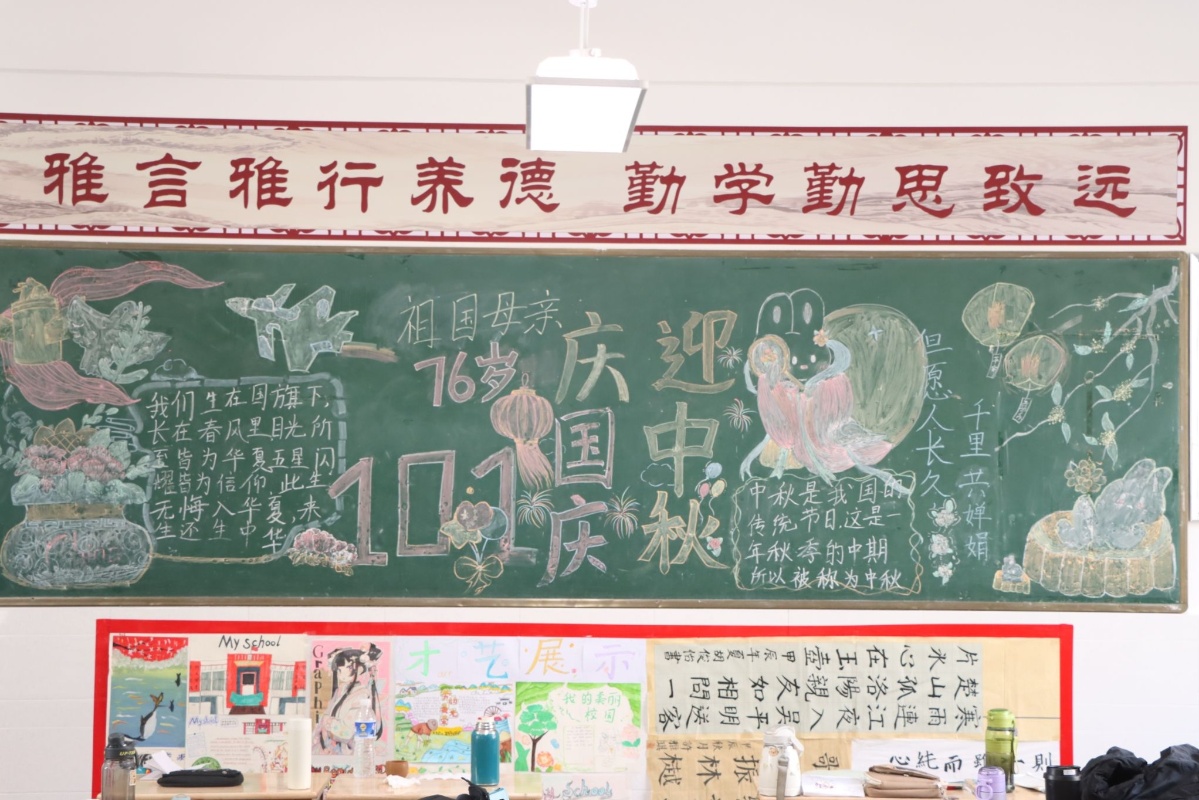 雅言雅行养德 勤学勤思致远
祖国母亲
76岁
101
庆国庆
迎中秋
我们生在国旗下,
长在春风里目光所
至皆为华夏五星闪
耀皆为信仰此生
无悔入华夏,来
生还生中华
中秋是我国的
传统节日,这是一
年秋季的中期
所以被称为中秋
但愿人长久
千里共婵娟
My school
Graphi
才艺展示
我的美丽
校园
寒雨連江夜入吳平明送客
楚山孤洛陽親友如相問一
片氷心在玉壺